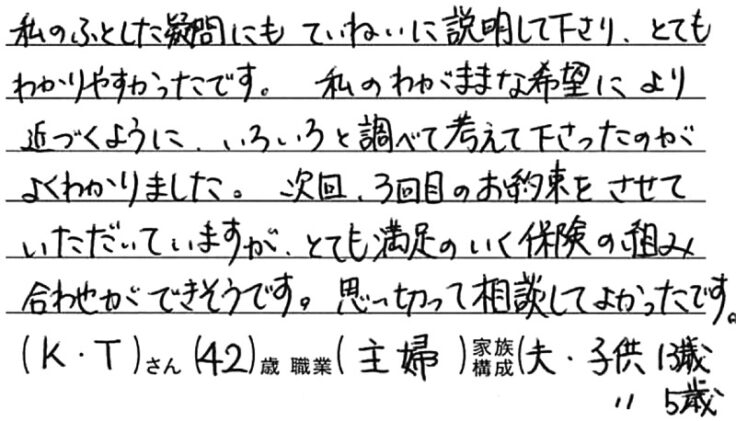 私のふとした疑問にも ていねいに説明して下さり、とても
わかりやすかったです。 私のわがままな希望に より
近づくように、いろいろと調べて考えて下さったのが
よくわかりました。 次回、3回目のお約束を させて
いただいていますが、とても満足のいく保険の組み
合わせができそうです。思い切って相談してよかったです。
(K・T)さん (42)歳 職業(主婦)家族構成(夫・子供 13歳
〃 5歳